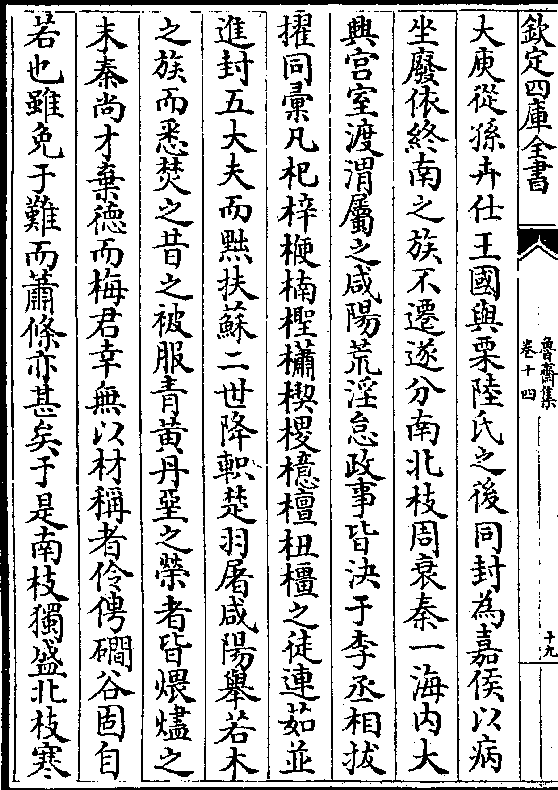 欽定四庫全書
魯齋集
卷十四
十九
大庾從孫卉仕王國與栗陸氏之後同封為嘉侯以病
坐廢依終南之族不遷遂分南北枝周衰秦一海内大
興宫室渡渭屬之咸陽荒淫怠政事皆決于李丞相拔
擢同彚凡杞梓楩楠檉櫹楔櫻檍檀杻橿之徒連茹並
進封五大夫而黜扶蘇二世降軹楚羽屠咸陽舉若木
之族而悉焚之昔之被服青黄丹堊之榮者皆煨燼之
末秦尚才棄德而梅君幸無以材稱者伶俜磵谷固自
若也雖免于難而蕭條亦甚矣于是南枝獨盛北枝寒